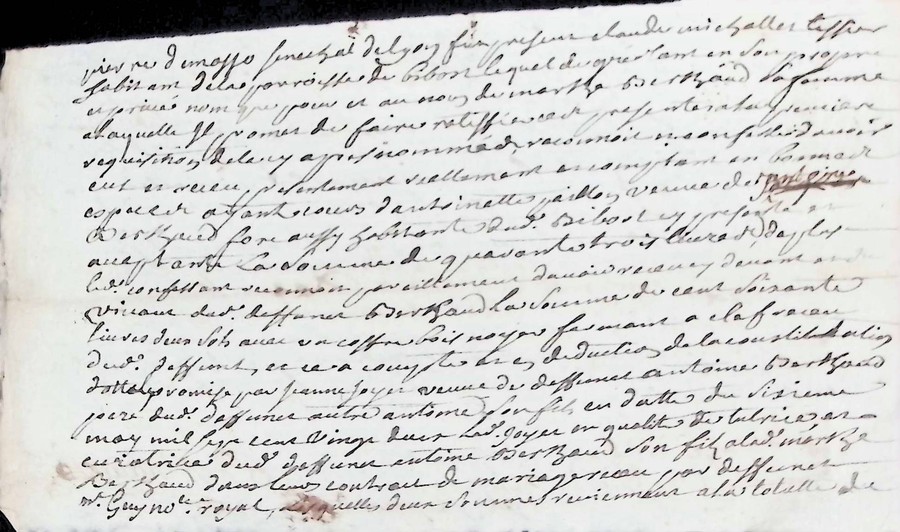 pierre demasso senechal de lyon fut present claude michallet tissier
habitant de la parroisse de bibost lequel de gré tant en son propre
et privé nom que pour et au nom de marthe Berthaud sa femme
a laquelle Il promet de faire ratiffier ces presentes a la premiere
requisition de la cy apres nommée reconnoit et confesse davoir
eut et receu presentement reellement et comptant en bonnes
especes ayant cours dantoinette paillon veuve de
Berthaud fore aussy habitante dud. Bibost cy presente et
acceptante La somme de quarante trois livres, de plus
led. confessant reconnoit pareillement davoir receu cy devant
vivant dud. deffunt Berthaud la somme de cent soixante
livres deux sols avec un coffre bois noyer fermant a clef receu
dud. deffunt, et ce a compte et en deduction de la constitution
promise par jeanne joyet veuve de deffunt antoine Berthaud
pere dud. deffunt autre antoine son fils en datte du sixieme
may mil sept cent vingt deux lad. joyet en qualité de tutrice et
curatrice dud. deffunt antoine Berthaud son fils a lad. marthe
Berthaud dans leur contract de mariage receu par deffunt
me. Guy nore. royal, lesquelles deux sommes reviennent a la totalle de